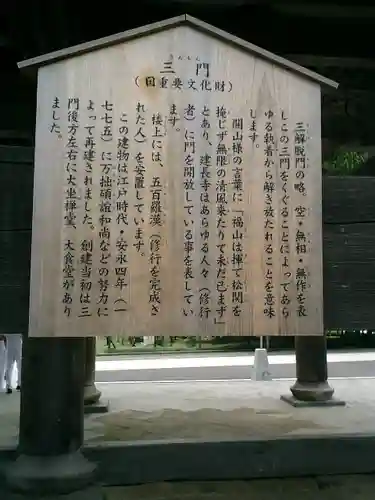 さんもん
三門
(国重要文化財)
三解脱門の略。空・無相・無作を表
しこの三門をくぐることによってあら
ゆる執着から解き放たれることを意味
します。
開山様の言葉に「福山は揮て松関を
掩じず無限の清風来たりて未だ已まず」
とあり、建長寺はあらゆる人々（修行
者）に門を開放している事を表してい
ます。
楼上には、五百羅漢（修行を完成さ
れた人）を安置しています。
この建物は江戸時代・安永四年（一
七七五）に万拙碩誼和尚などの努力に
よって再建されました。創建当初は三
門後方左右に大坐禅堂、大食堂があり
ました。